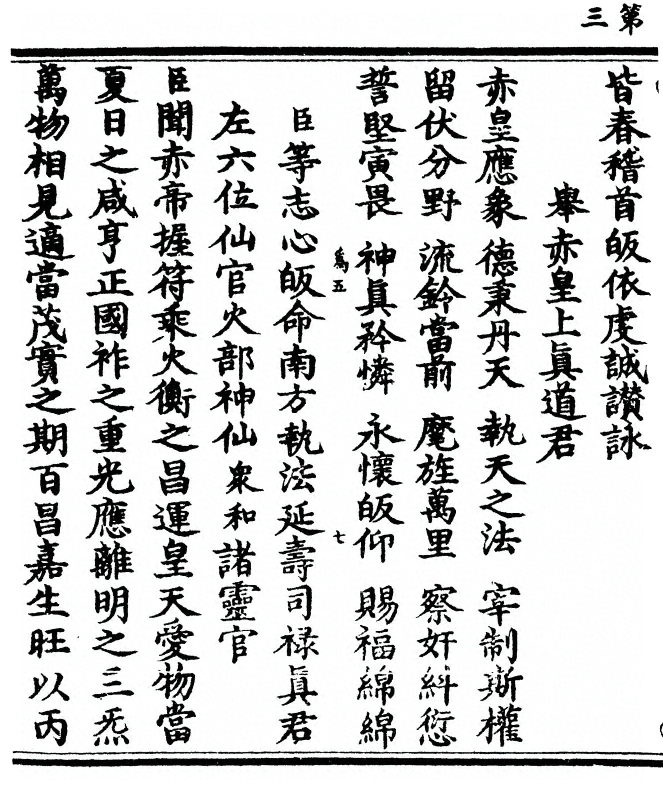 第三
皆春稽首皈依虔誠讃詠
舉赤皇上眞道君
赤皇應象德秉丹天執天之法宰制斯權
留伏分野流鈴當前魔旌萬里察奸糾愆
誓堅寅畏神眞矜憐永懷皈仰賜福綿綿
爲五
七
臣等志心皈命南方執法延壽司禄眞君
左六位仙官火部神仙衆和諸靈官
臣聞赤帝握符乘火衡之昌運皇天愛物當
夏日之咸亨正國祚之重光應離明之三炁
萬物相見適當茂實之期百昌嘉生旺以丙